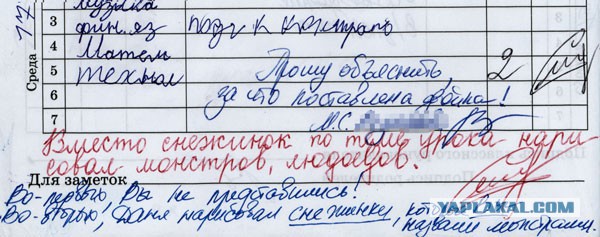 17
музыка
3 фин. яз подг к контраль
4 Матем
Среда
5 техпол 2
Прошу объяснить,
6 за что поставлена двойка!
7 М.С.
Вместо снежинок по теме урока нари
совал монстров, людоедов.
Для заметок
Во-первых, Вы не представились!
Во-вторых, Даня нарисовал снежинки, кот
назвали монстрами.
YAPLAKAL.COM